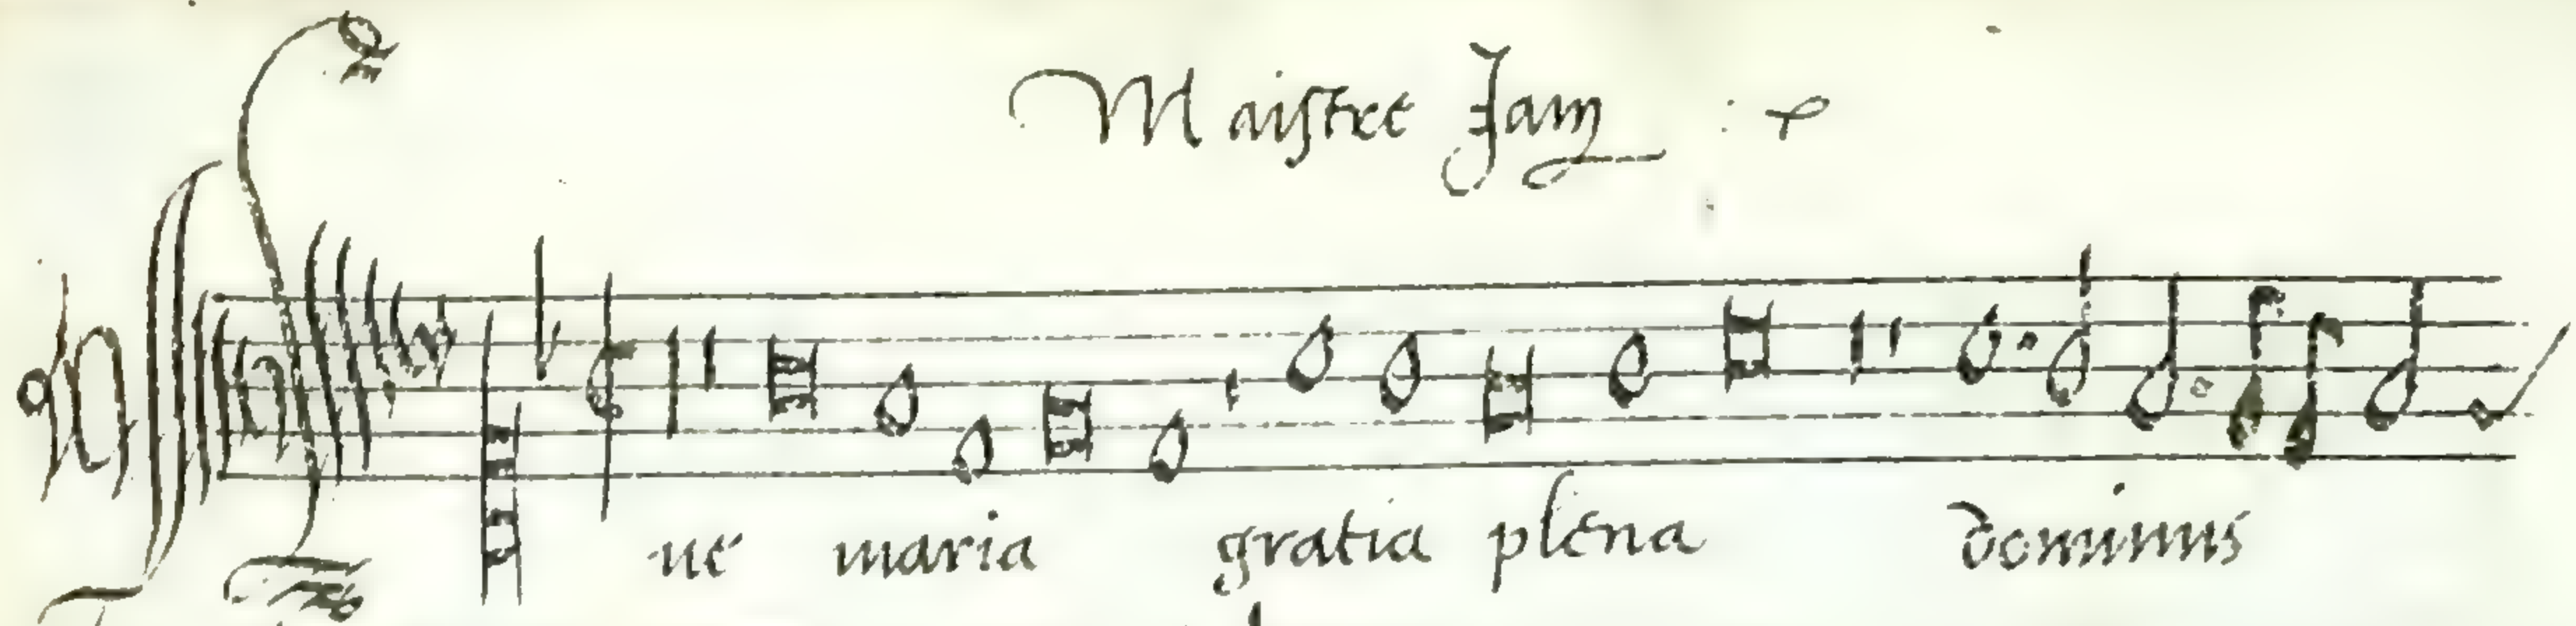 Maistre Jam
A
ue maria gratia plena dominus